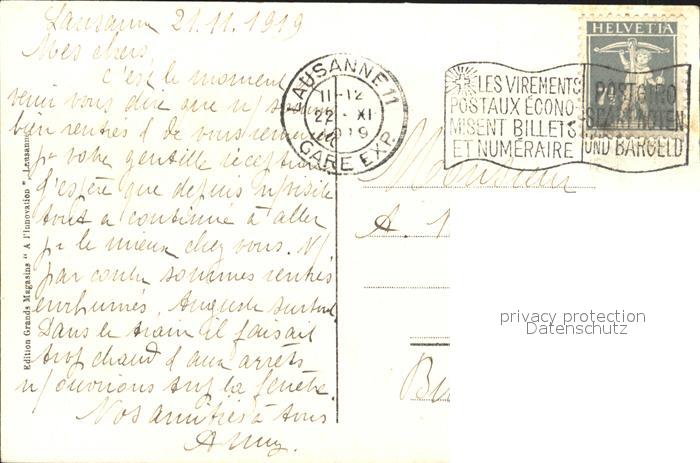 Lausanne 21.11.1919
Mes chers,
c'est le moment
venir vous dire que n/ sommes
bien rentrés & de vous remercier
pr votre gentille réception
J'espère que depuis n/ visite
tout a continué à aller
pr le mieux chez vous. N/
par contre sommes rentrés
enrhumés, Auguste surtout.
Dans le train il faisait
trop chaud & aux arrêts
n/ ouvrions trop la fenêtre.
Nos amitiés à tous
Edition Grands Magasins " A l'Innovation ", Lausanne
LAUSANNE 11
11-12
22. XI
1919
GARE EXP.
LES VIREMENTS
POSTAUX ÉCONO-
MISENT BILLETS
ET NUMÉRAIRE
HELVETIA
POSTGIRO
UND BARGELD
Monsieur
A.
privacy protection
Datenschutz